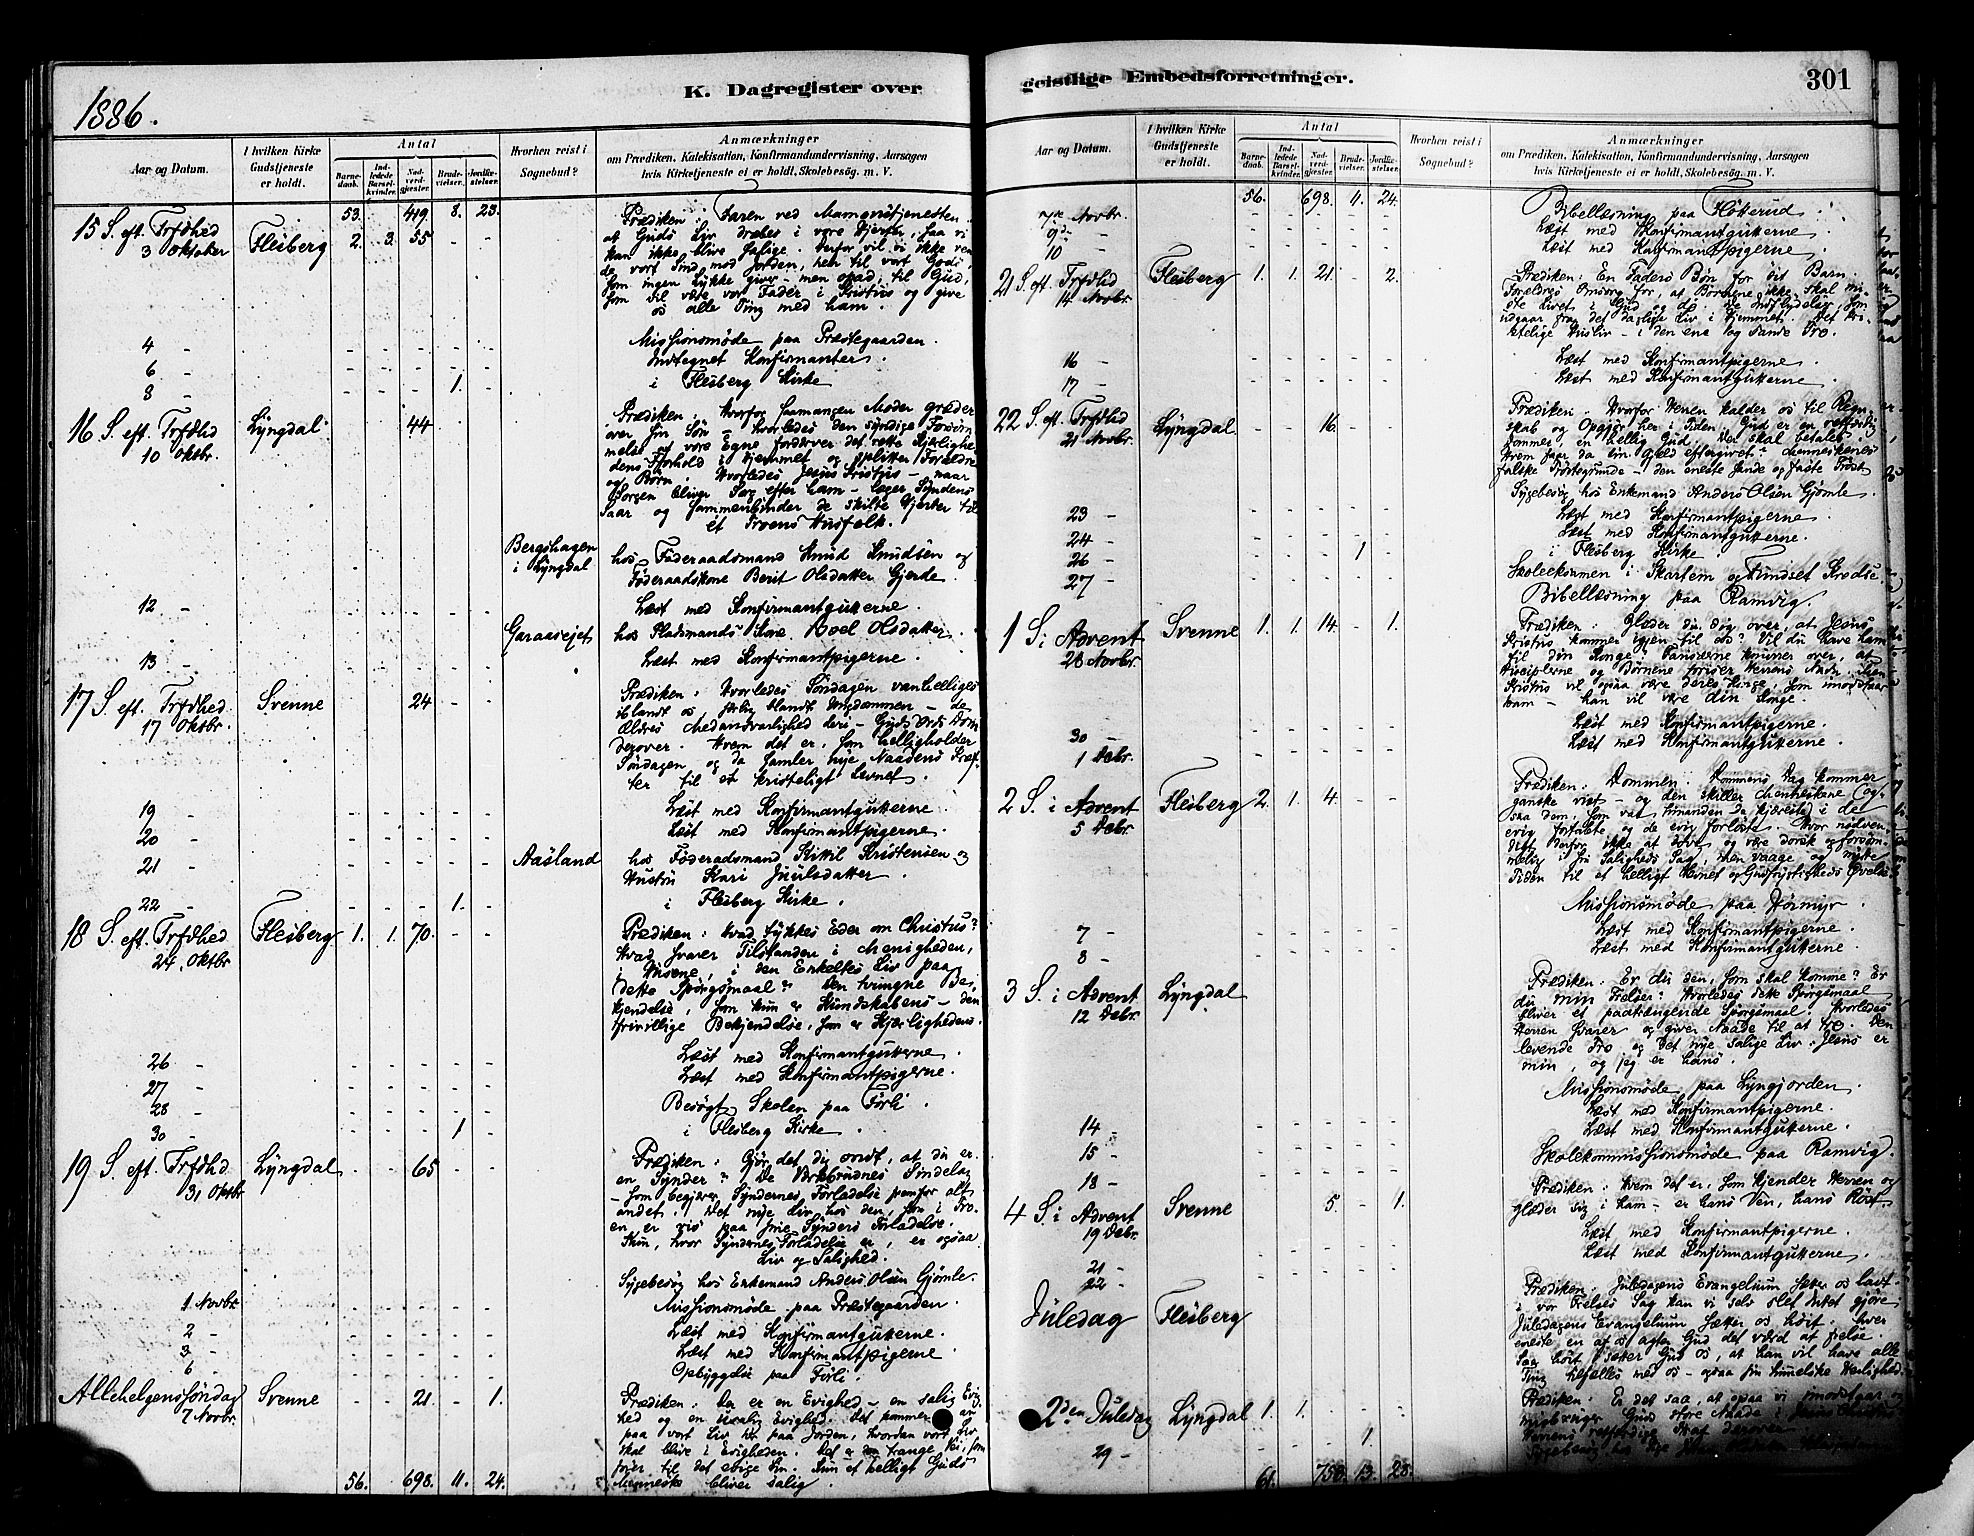 1886.
K. Dagregister over
Aar og Datum.
I hvilken Kirke Gudstjeneste er holdt.
Antal
Barnedaab.
Indledede Barselkvinder.
Nadverdgjester.
Brudevielser.
Jordfæstelser.
Hvorhen reist i Sognebud?
Anmærkninger
om Prædiken, Katekisation, Konfirmandundervisning, Aarsagen
hvis Kirketjeneste ei er holdt, Skolebesøg. m. V.
53. 419. 8. 23.
15 S. eft. Trfdhed Flesberg 2. 3. 55 - -
3 Oktober
Prædiken: Faren ved Mamonstjenesten
at Guds Liv dræbes i vore Hjerter, saa vi
kan ikke blive salige. Derfor vil vi ikke ven
de vort Sind mod Jorden, hen til vort Gods,
som ingen Lykke giver, men opad, til Gud,
som vil være vor Fader i Kristus og give
os alle Ting med ham.
4 - Missionsmøde paa Præstegaarden.
6 - Indtegnet Konfirmanter.
8 - 1. i Flesberg Kirke
16 S. eft. Trfdhd Lyngdal - - 44 - -
10 Oktbr.
Prædiken: Hvorfor saamangen Moder græder
over sin Søn - hvorledes den syndige Forsøm
melse at vore Egne fordærver det rette Kjærlighe
dens Forhold i Hjemmet og splitter Forældre
og Børn. Hvorledes Jesus Kristus - naar
Sorgen bliver Sorg efter ham - læger Syndens
Saar og sammenbinder de skilte Hjerter til
et Troens Husfolk.
Bergshagen i Lyngdal hos Føderaadsmand Knud Knudsen og
Føderaadskone Berit Olsdatter Gjerde.
12 - Læst med Konfirmantgutterne.
Garaasejet hos Pladsmands Kone Boel Olsdatter.
13 - Læst med Konfirmantpigerne.
17 S. eft. Trfdhed Svenne - - 24 - -
17 Oktbr.
Prædiken: Hvorledes Søndagen vanhelliges
iblandt os, særlig blandt Ungdommen - de
Ældres Medansvarlighed deri - Guds Ords Dom
derover. Hvem det er, som helligholder
Søndagen og da samler nye Naadens Kræf-
ter til et kristeligt Levnet.
19 - Læst med Konfirmantgutterne.
20 - Læst med Konfirmantpigerne.
21 - Aasland hos Føderaadsmand Kittil Kristensen og
Hustru Kari Juulsdatter.
22 - 1. i Flesberg Kirke.
18 S. eft. Trfdhed Flesberg 1. 1. 70. - -
24. Oktbr
Prædiken: Hvad tykkes Eder om Christus?
Hvad svarer Tilstanden i Menigheden,
i Husene, i den Enkeltes Liv paa
dette Spørgsmaal? Den tvungne Be-
kjendelse, som kun er Kundskabens - den
frivillige Bekjendelse, som er Kjærlighedens.
26 - Læst med Konfirmantgutterne.
27 - Læst med Konfirmantpigerne.
28 - Besøgt Skolen paa Førli.
30 - 1 i Flesberg Kirke.
19 S. eft. Trfdhd Lyngdal - - 65 - -
31 Oktbr
Prædiken: Gjør det dig ondt, at du er
en Synder? De Verkbrudnes Sindelag
- som begjærer Syndernes Forladelse fremfor alt
andet. Det nye Liv hos den, som i Tro-
en er vis paa sine Synders Forladelse.
Kun, hvor Syndernes Forladelse er, er ogsaa
Liv og Salighed.
Sygebesøg hos Enkemand Anders Olsen Gjømle.
1 Novbr. Missionsmøde paa Præstegaarden.
2 - Læst med Konfirmantgutterne.
3 - Læst med Konfirmantpigerne
6 - Opbyggelse paa Førli.
Allehelgenssøndag Svenne - - 21 - 1.
7 Novbr.
Prædiken: Der er en Evighed - en salig Evig-
hed og en usalig Evighed. Det kommer an
paa vort Liv her paa Jorden, hvordan vort Liv
skal blive i Evigheden. Det er den trange Vei, som
fører til det evige Liv. Kun et helligt Guds
Menneske bliver salig.
56. 698. 11. 24.
geistlige Embedsforretninger.
301
Aar og Datum.
I hvilken Kirke Gudstjeneste er holdt.
Antal
Barnedaab.
Indledede Barselkvinder.
Nadverdgjester.
Brudevielser.
Jordfæstelser.
Hvorhen reist i Sognebud?
Anmærkninger
om Prædiken, Katekisation, Konfirmandundervisning, Aarsagen
hvis Kirketjeneste ei er holdt, Skolebesøg. m. V.
56. 698. 11. 24.
7de Novbr. Bibellæsning paa Fløtterud.
9de - Læst med Konfirmantgutterne.
10 - Læst med Konfirmantpigerne.
21 S. eft. Trfdhd Flesberg 1. 1. 21. - 2.
14 Novbr.
Prædiken: En Faders Bøn for sit Barn.
Forældres Omsorg for, at Børnene ikke skal mi-
ste Livet i Gud og dø. De Indflydelser, som
udgaar fra det daglige Liv i Hjemmet. Det kri-
stelige Husliv - i den ene og sande Tro.
16 - Læst med Konfirmantpigerne.
17 - Læst med Konfirmantgutterne.
22 S. eft. Trfdhd Lyngdal - - 16. - -
21 Novbr.
Prædiken. Hvorfor Herren kalder os til Regn-
skab og Opgjør her i Tiden. Gud er en retfærdig
Dommer, en hellig Gud. Der skal betales.
Hvem faar da sin Gjæld eftergivet? Menneskenes
falske Trøstegrunde - den eneste sande og faste Trøst.
Sygebesøg hos Enkemand Anders Olsen Gjømle.
23 - Læst med Konfirmantpigerne.
24 - Læst med Konfirmantgutterne.
26 - 1 i Flesberg Kirke.
27 - Skoleeksamen i Skartem og Fundset Kredse
Bibellæsning paa Ramvig.
1 S. i Advent Svenne 1. 1. 14. - 1.
28 Novbr.
Prædiken: Glæder du dig over, at Jesus
Kristus kommer igjen til os? Vil du have ham
til din Konge? Farisæerne knurrer over, at
Disciplene og Børnene priser Herrens Navn. Men
Kristus vil ogsaa være deres Konge, som imodstaar
ham - han vil være din Konge.
30 - Læst med Konfirmantpigerne.
1 Debr. Læst med Konfirmantgutterne.
2 S. i Advent Flesberg 2. 1. 4. - -
5 Debr.
Prædiken: Dommen. Dommens Dag kommer
ganske vist - og den skiller Menneskene og-
saa dem, som var hinanden de kjæreste i det
evig fortabte og de evig forløste. Hvor nødven-
digt derfor ikke at sove og være dorsk og forsøm-
melig i sin Saligheds Sag, men vaage og nytte
Tiden til et helligt Levnet og Gudfrygtigheds Øvelse.
Missionsmøde paa Dørmyr.
7 - Læst med Konfirmantpigerne.
8 - Læst med Konfirmantgutterne.
3 S. i Advent Lyngdal
12 Debr.
Prædiken: Er du den, som skal komme? Er
du min Frelser? Hvorledes dette Spørgsmaal
bliver et paatrængende Spørgsmaal. Hvorledes
Herren svarer og giver Naade til at tro. Den
levende Tro og det nye salige Liv: Jesus er
min, og jeg er hans.
Missionsmøde paa Lyngjorden.
14 - Læst med Konfirmantpigerne.
15 - Læst med Konfirmantgutterne.
18 - Skolekommissionsmøde paa Ramvig.
4 S. i Advent Svenne 5. - 1.
19 Debr.
Prædiken: Hvem det er, som kjender Herren og
glæder sig i ham - er hans Ven, hans Røst.
21 - Læst med Konfirmantpigerne.
22 - Læst med Konfirmantgutterne.
Juledag Flesberg
Prædiken: Juledagens Evangelium sætter os lavt.
i vor Frelses Sag kan vi selv slet Intet gjøre
Juledagens Evangelium sætter os høit. hver
eneste en af os agter Gud det værd at frelse.
Saa høit sætter Gud os, at han vil have alle
Ting tilfælles med os - ogsaa sin himmelske Herlighed.
2den Juledag Lyngdal 1. 1. - - -
Prædiken: Er det saa, at ogsaa vi imodstaar og
misbruger Guds store Naade i
Herrens retfærdige Straf derover.
29 - 1
61. 758. 13. 28.